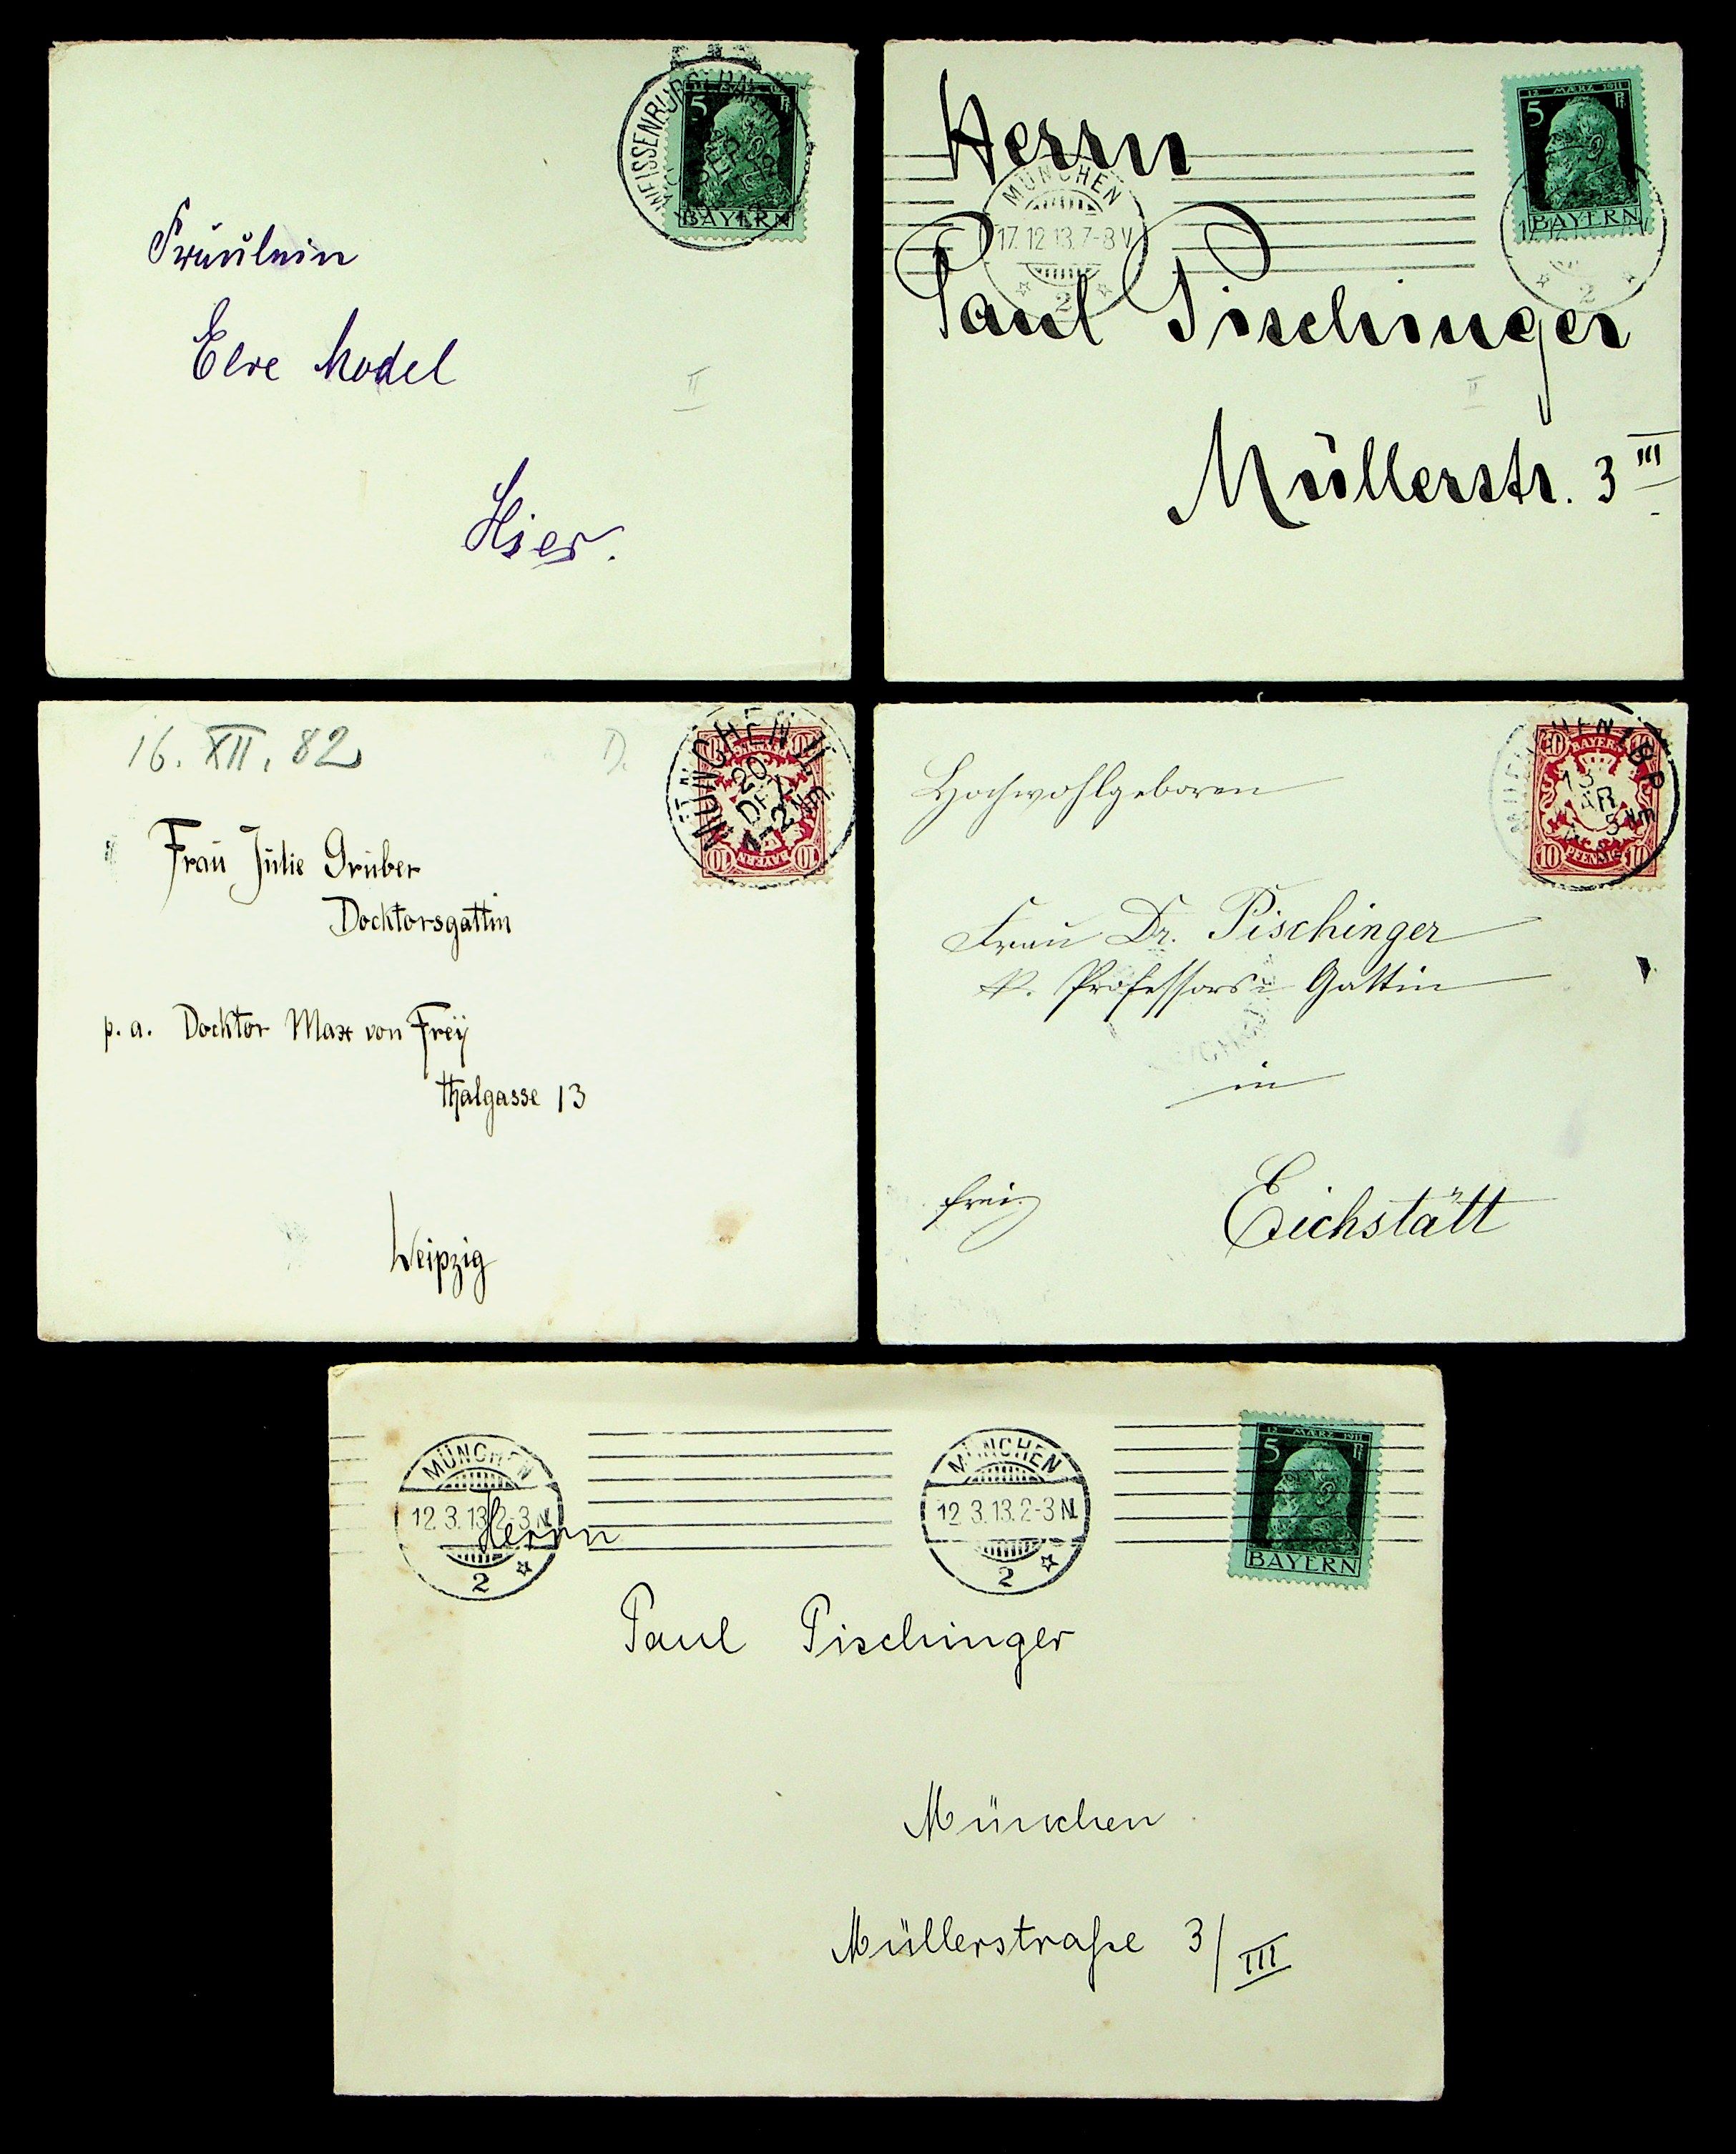 5
BAYERN
Fräulein
Model
Hier.
II
12 MÆRZ 1911
5 Pf
BAYERN
Herrn
MÜNCHEN
17.12.13.7-8 V
2
2
Paul Pischinger
II
Müllerstr. 3 III
16. XII. 82
D.
MÜNCHEN II.
20
DEZ
1-2 Nm.
10 10
BAYERN
Frau Julie Gruber
Docktorsgattin
p. a. Docktor Max von Freÿ
Thalgasse 13
Leipzig
10 BAYERN 10
13
10 PFENNIG 10
Hochwohlgeboren
Frau Dr. Pischinger
k. Professors-Gattin
in
frei
Eichstätt
MÜNCHEN
12.3.13.2-3 N.
2
MÜNCHEN
12.3.13.2-3 N.
2
12 MÆRZ 1911
5 Pf
BAYERN
Herrn
Paul Pischinger
München
Müllerstraße 3/III